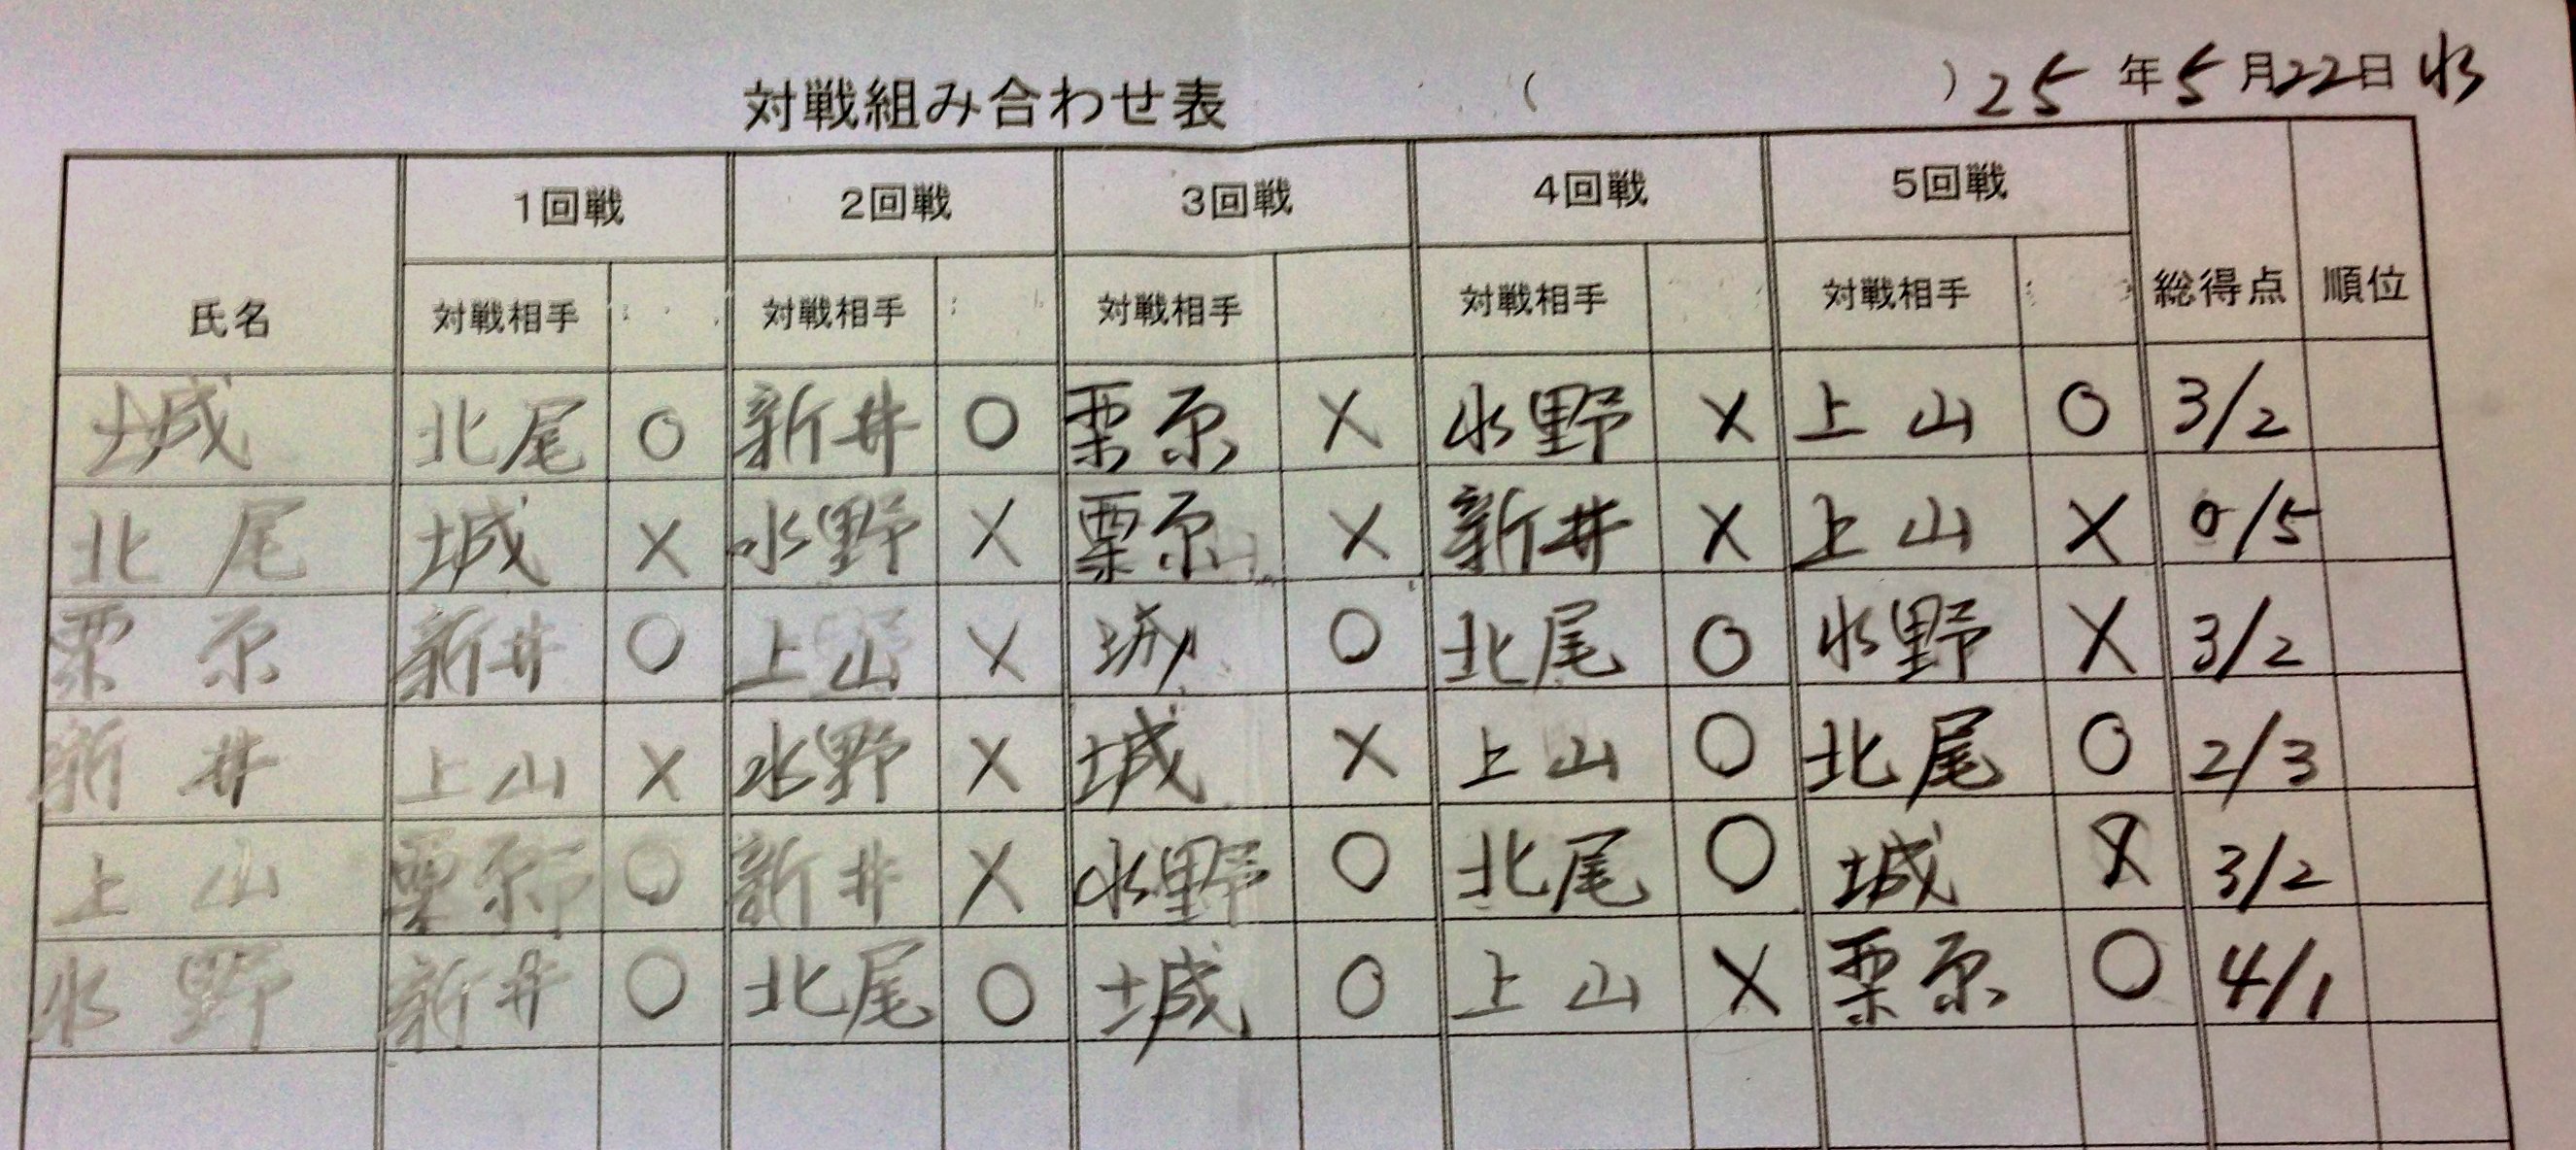 対戦組み合わせ表 ( ) 25年5月22日 水
1回戦 2回戦 3回戦 4回戦 5回戦
氏名 対戦相手 対戦相手 対戦相手 対戦相手 対戦相手 総得点 順位
城 北尾 ○ 新井 ○ 栗原 × 水野 × 上山 ○ 3/2
北尾 城 × 水野 × 栗原 × 新井 × 上山 × 0/5
栗原 新井 ○ 上山 × 城 ○ 北尾 ○ 水野 × 3/2
新井 上山 × 水野 × 城 × 上山 ○ 北尾 ○ 2/3
上山 栗原 ○ 新井 × 水野 ○ 北尾 ○ 城 × 3/2
水野 新井 ○ 北尾 ○ 城 ○ 上山 × 栗原 ○ 4/1